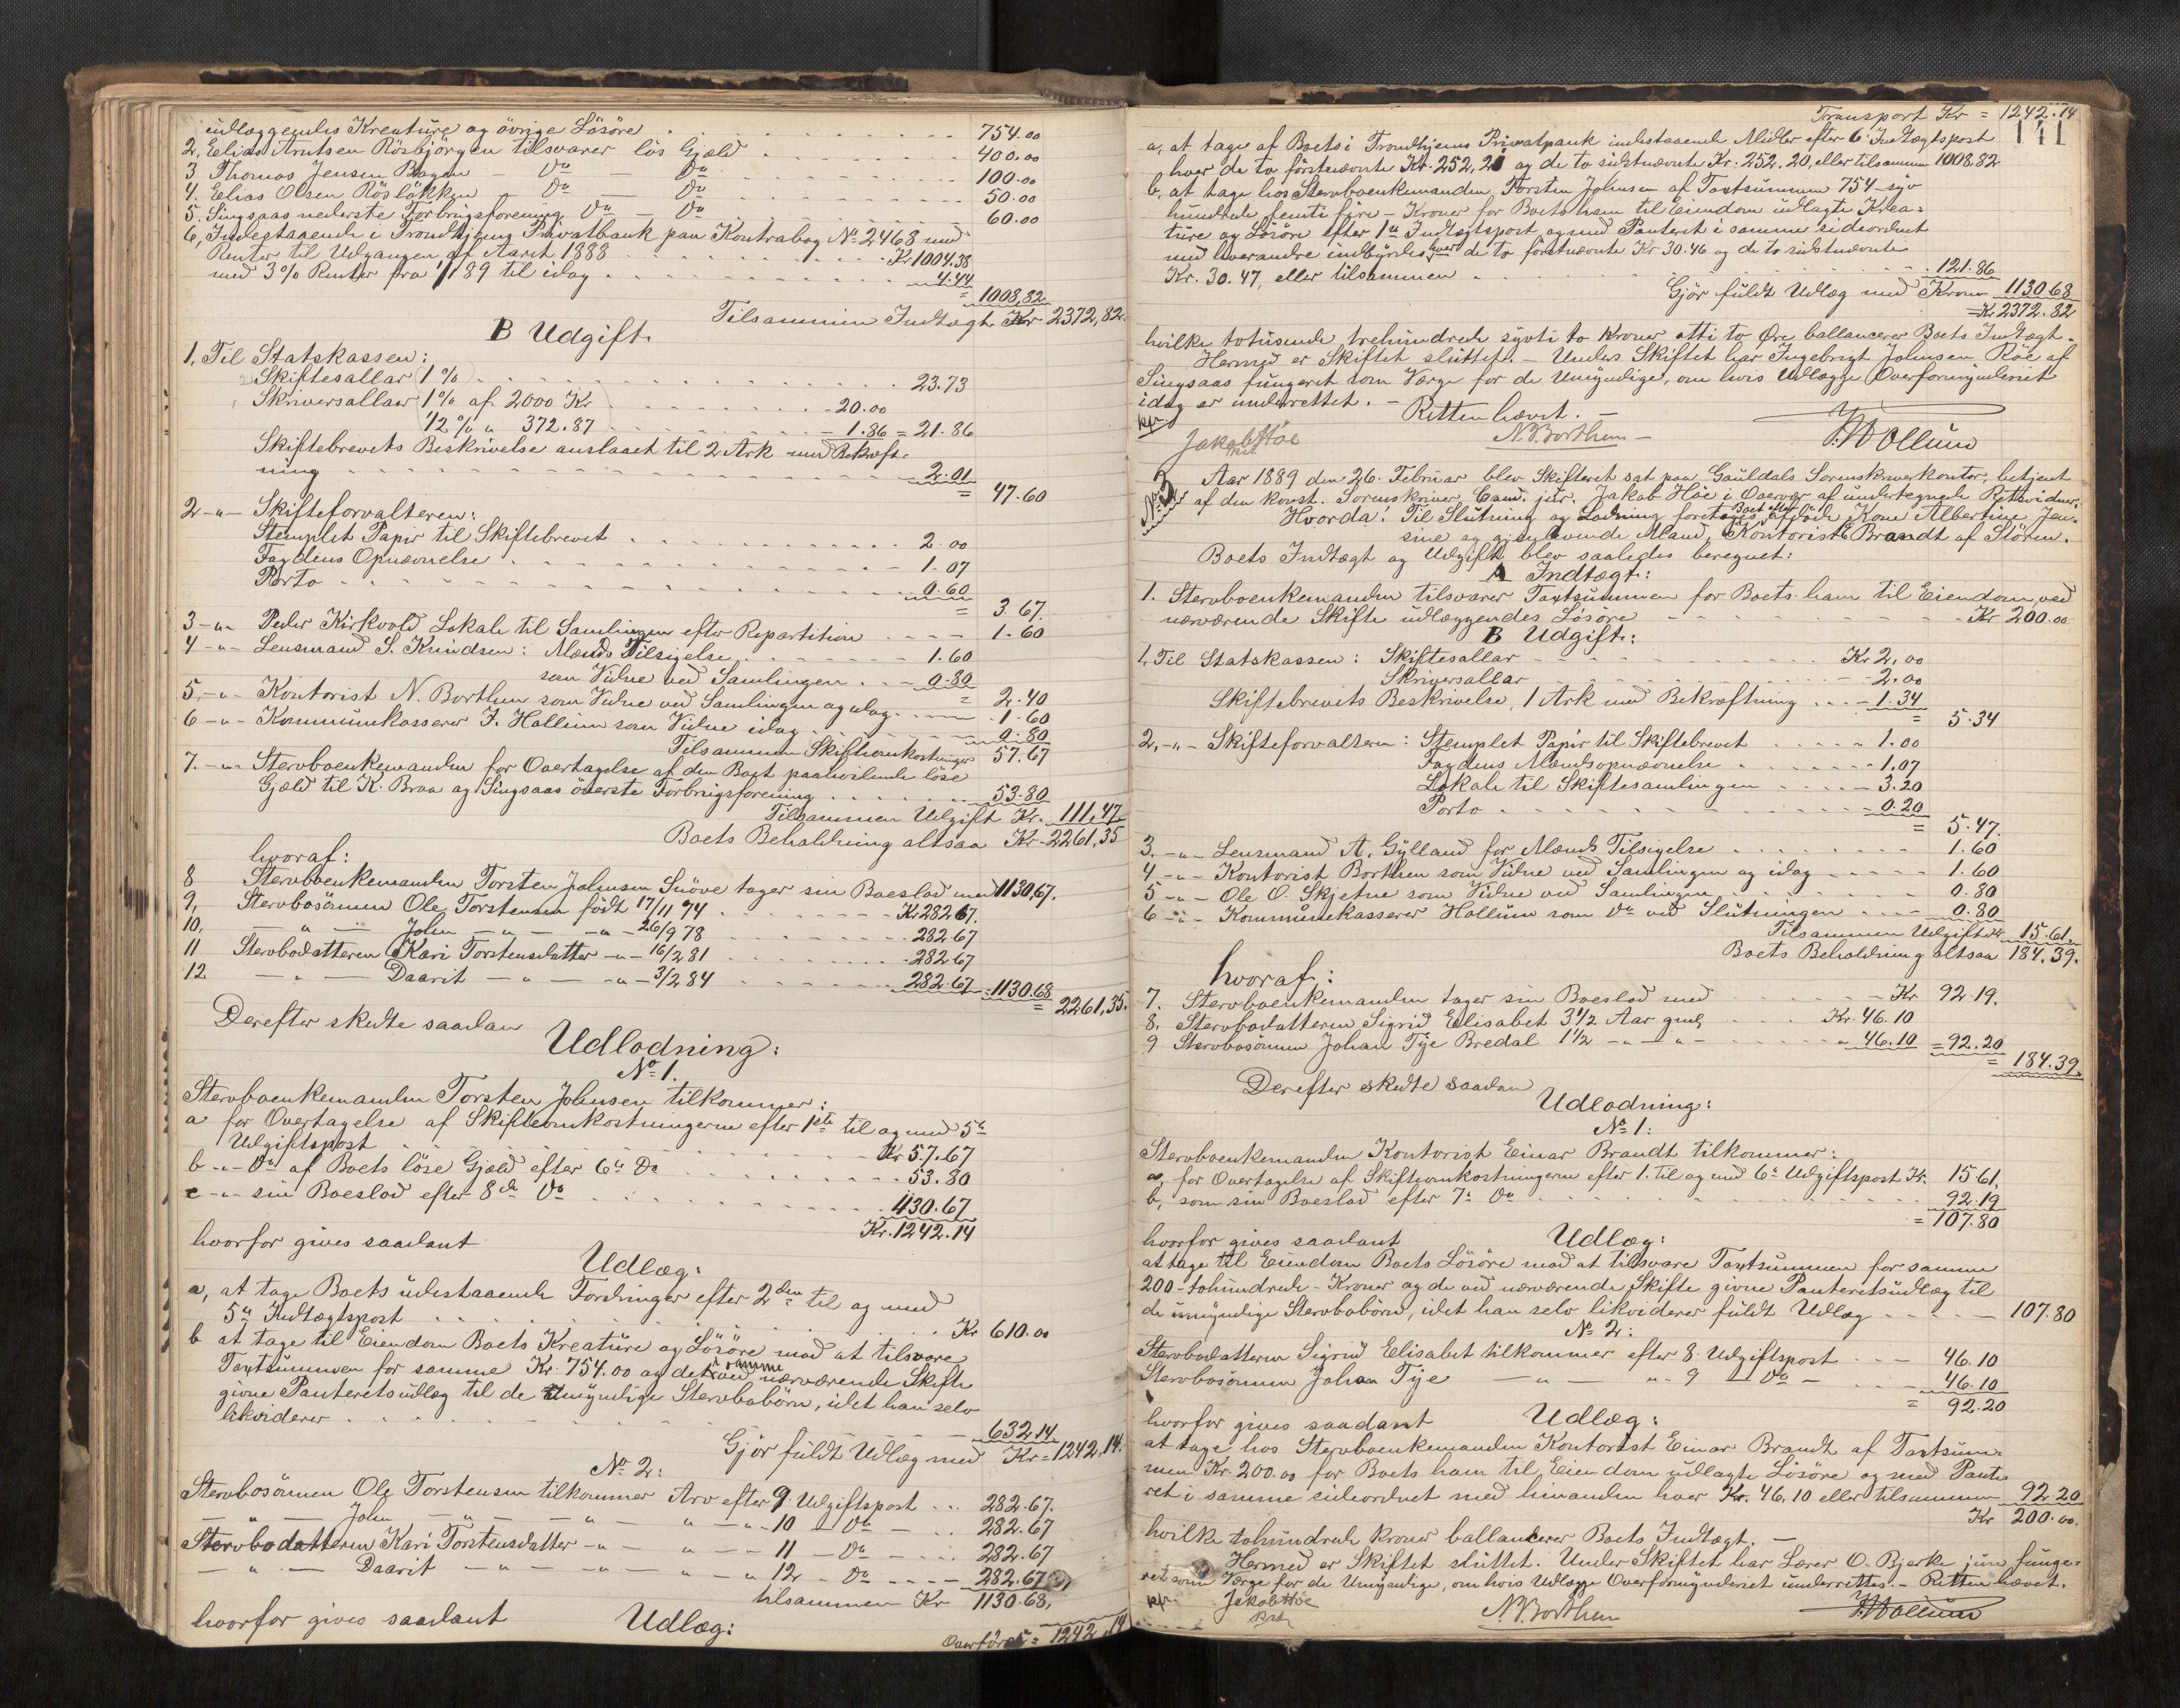 udlæggendes Kreature og övrige Lösöre . . . 754.00
2, Elida Arntsen Rösbjörgen tilsvarer lös Gjæld . . . 400.00
3 Thomas Jensen Bagen — Do — Do . . . 100.00
4. Elias Olsen Röslökken — Do — Do . . . 50.00
5. Singsaas nederste Forbrugsforening Do — Do . . . 60.00
6, Indestaaende i Trondhjems Privatbank paa Kontrabog No 2468 med
Renter til Udgangen af Aaret 1888 . . . Kr 1004.38
med 3% Renter fra 1/1 89 til idag . . . 4.44
= 1008,82
Tilsammen Indtægt Kr 2372,82.
B Udgift.
1, Til Statskassen:
Skiftesallar (1% . . . 23.73
Skriversallar (1% af 2000 Kr . . . 20.00
1/2 % " 372.87 . . . 1.86 = 21.86
Skiftebrevets Beskrivelse anslaaet til 2 Ark med Bekræft-
ning . . . 2.01
= 47.60
2 -"- Skifteforvalteren:
Stemplet Papir til Skiftebrevet . . . 2.00
Fogdens Opnævnelse . . . 1.07
Porto . . . 0.60
= 3.67.
3 -"- Peder Kirkvold Lokale til Samlingen efter Repartition . . . 1.60
4 -"- Lensmand S. Knudsen: Mænds Tilsigelse . . . 1.60
som Vidne ved Samlingen . . . 0.80
= 2.40
5, -"- Kontorist N. Borthen som Vidne ved Samlingen og idag . . . 1.60
6 -"- Kommunekasserer J. Hollum som Vidne idag . . . 0.80
Tilsammen Skifteomkostninger 57.67
7. -"- Stervboenkemanden for Overtagelse af den Boet paahvilende löse
Gjæld til K. Braa og Singsaas överste Forbrugsforening . . . 53.80
Tilsammen Udgift Kr. 111,47.
Boets Beholdning altsaa Kr 2261,35
hvoraf:
8 Stervboenkemanden Torsten Johnsen Snöve tager sin Boeslod med 1130,67.
9, Stervbosönnen Ole Torstensen födt 17/11 74 . . . Kr 282 67.
10. — " — John — " — -"- 26/9 78 . . . 282.67
11 Stervbodatteren Kari Torstensdatter -"- 16/2 81 . . . 282 67
12. — " — Daarit — " — -"- 3/2 84 . . . 282.67 = 1130.68
= 2261,35.
Derefter skedte saadan
Udlodning:
No 1.
Stervboenkemanden Torsten Johnsen tilkommer:
a for Overtagelse af Skifteomkostningerne efter 1ste til og med 5te
Udgiftspost . . . Kr 57.67
b -"- Do af Boets löse Gjæld efter 6te Do . . . 53.80
c -"- sin Boeslod efter 8de Do . . . 1130.67
Kr. 1242.14
hvorfor gives saadant
Udlæg:
a, at tage Boets udestaaende Fordringer efter 2den til og med
5te Indtægtspost . . . Kr 610.00
b at tage til Eiendom Boets Kreature og Lösöre mod at tilsvare
Taxtsummen for samme Kr. 754.00 og de i samme ved nærværende Skifte
givne Panteretsudlæg til de Umyndige Stervbobörn, idet han selv
likviderer . . . 632.14
Gjör fuldt Udlæg med Kr = 1242,14.
No 2:
Stervbosönnen Ole Torstensen tilkommer Arv efter 9. Udgiftspost . . . 282.67.
— " — John — " — — " — " — " — 10 — Do — . . . 282.67
Stervbodatteren Kari Torstensdatter -"- — " — — 11 — Do — . . . 282.67
— " — Daarit — " — -"- — " — " 12 — Do . . . 282.67
tilsammen Kr 1130.68,
hvorfor gives saadant Udlæg:
Overföres = 1242,14
Transport Kr = 1242.14
141
a, at tage af Boets i Trondhjems Privatpank indestaaende Midler efter 6. Indtægtspost
hver de to förstnævnte Kr. 252,21 og de to sidstnævnte Kr. 252.20, eller tilsammen 1008.82
b, at tage hos Stervboenkemanden Torsten Johnsen af Taxtsummen 754 - syv
hundrede femti fire - Kroner for Boets ham til Eiendom udlagte Krea-
ture og Lösöre efter 1te Indtægtspost, og med Panteret i samme sideordnet
med hverandre indbyrdes, hver de to förstnævnte Kr 30.46 og de to sidstnævnte
Kr. 30.47, eller tilsammen . . . 121.86
Gjör fuldt Udlæg med Kroner 1130.68
= Kr 2372.82
hvilke totusende trehundrede sytti to Kroner otti to Öre ballancerer Boets Indtægt.
Hermed er Skiftet sluttet. — Under Skiftet har Ingebrigt Johnsen Röe af
Singsaas fungeret som Værge for de Umyndige, om hvis Udlægge Overformynderiet
idag er underrettet. — Retten hævet. —
kfr
Jakob Höe
N. Borthen —
J. Hollum
No 3
Aar 1889 den 26. Februar blev Skifteret sat paa Guldals Sorenskriverkontor, betjent
af den konst. Sorenskriver, Cand. jur. Jakob Höe i Overvær af undertegnede Retsvidner.
Hvorda: Til Slutning og Lodning foretages Boet efter afdöde Kone Albertine Jen-
sine og gjenlevende Mand, Kontorist E Brandt af Stören.
Boets Indtægt og Udgift blev saaledes beregnet:
A Indtægt:
1. Stervboenkemanden tilsvarer Taxtsummen for Boets ham til Eiendom ved
nærværende Skifte udlæggendes Lösöre . . . Kr 200.00
B Udgift:
1, Til Statskassen: Skiftesallar . . . Kr 2,00
Skriversallar . . . 2.00
Skiftebrevets Beskrivelse, 1 Ark med Bekræftning . . . 1.34
= 5.34
2, -"- Skifteforvalteren: Stemplet Papir til Skiftebrevet . . . 1.00
Fogdens Mændsopnævnelse . . . 1.07
Lokale til Skiftesamlingen . . . 3.20
Porto . . . 0.20
= 5.47.
3. -"- Lensmand A. Gylland for Mænds Tilsigelse . . . 1.60
4 -"- Kontorist Borthen som Vidne ved Samlingen og idag . . . 1.60
5 -"- Ole O. Skjetne som Vidne ved Samlingen . . . 0.80
6 -"- Kommunekasserer Hollum som Do ved Slutningen . . . 0.80
Tilsammen Udgift Kr 15.61.
Boets Beholdning altsaa 184.39.
hvoraf:
7. Stervboenkemanden tager sin Boeslod med . . . Kr 92.19.
8. Stervbodatteren Sigrid Elisabet 3 1/2 Aar gml. . . . Kr. 46.10
9 Stervbosönnen Johan Tye Bredal 1 1/2 -"- -"- . . . " 46.10 = 92.20
= 184.39.
Derefter skedte saadan
Udlodning:
No 1:
Stervboenkemanden Kontorist Einar Brandt tilkommer:
a, for Overtagelse af Skifteomkostningerne efter 1. til og med 6te Udgiftspost Kr. 15.61,
b, som sin Boeslod efter 7de Do . . . 92.19
= 107.80
hvorfor gives saadant Udlæg:
at tage til Eiendom Boets Lösöre mod at tilsvare Taxtsummen for samme
200 - tohundrede - Kroner og de ved nærværende Skifte givne Panteretsudlæg til
de umyndige Stervbobörn, idet han selv likviderer fuldt Udlæg . . . 107.80
No 2:
Stervbodatteren Sigrid Elisabet tilkommer efter 8. Udgiftspost . . . 46.10
Stervbosönnen Johan Tye — " — " - 9 — Do — . . . 46.10
= 92.20
hvorfor gives saadant Udlæg:
at tage hos Stervboenkemanden Kontorist Einar Brandt af Taxtsum-
men Kr. 200.00 for Boets ham til Eiendom udlagte Lösöre og med Pante-
ret i samme sideordnet med hinanden hver Kr. 46.10 eller tilsammen 92.20
Kr 200.00.
hvilke tohundrede Kroner ballancerer Boets Indtægt. —
Hermed er Skiftet sluttet. Under Skiftet har Lærer O. Bjerke jun funge-
ret som Værge for de Umyndige, om hvis Udlægge Overformynderiet underrettes. — Retten hævet.
kfr. Jakob Höe
N. Borthen
J. Hollum